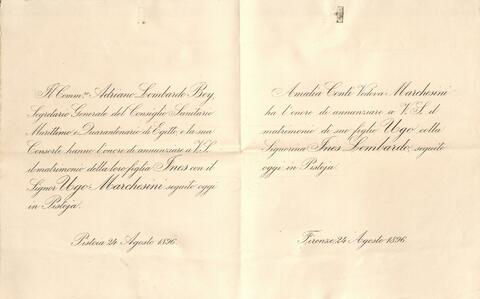 Il Comm.re Adriano Lombardo Bey,
Segretario Generale del Consiglio Sanitario
Marittimo e Quarantenario di Egitto e la sua
Consorte hanno l'onore di annunziare a V. S.
il matrimonio della loro figlia Ines con il
Signor Ugo Marchesini seguito oggi
in Pistoja.
Pistoia 24 Agosto 1896.
Amalia Conti Vedova Marchesini
ha l'onore di annunziare a V. S. il
matrimonio di suo figlio Ugo colla
Signorina Ines Lombardo, seguito
oggi in Pistoja.
Firenze, 24 Agosto 1896.